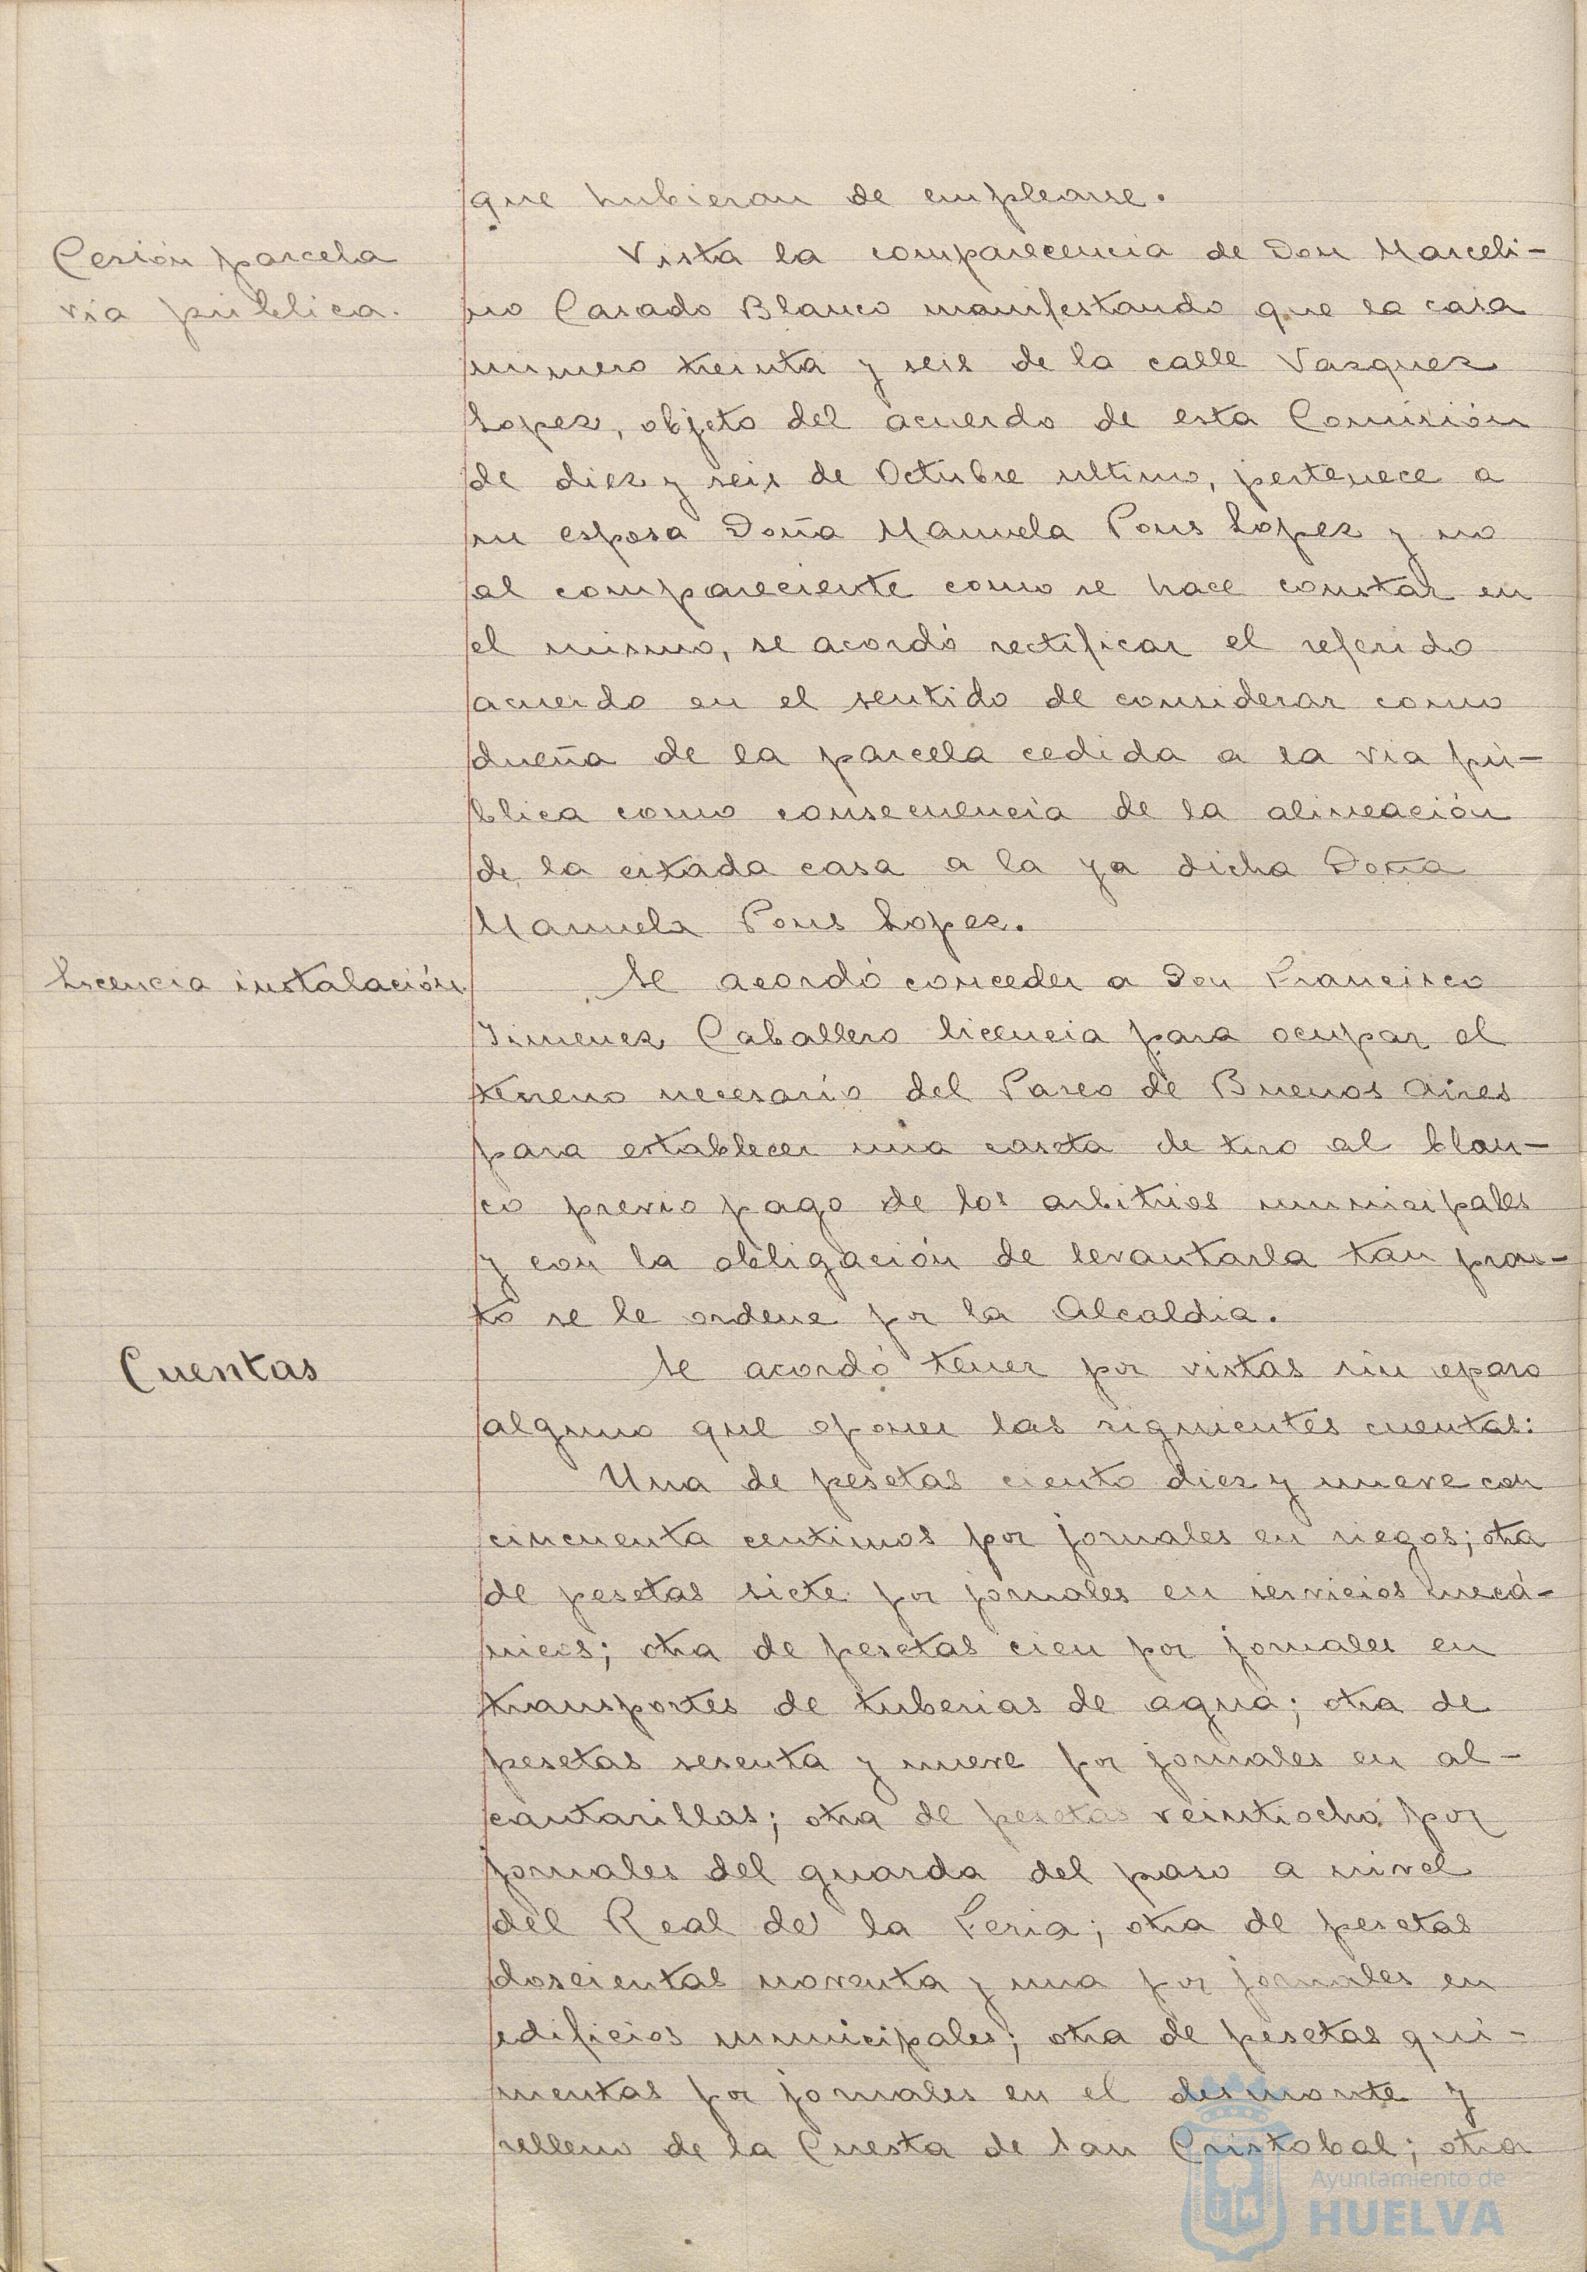 que hubieran de emplearse.
Cesión parcela
via pública.
Vista la comparecencia de Don Marceli-
no Casado Blanco manifestando que la casa
numero treinta y seis de la calle Vazquez
Lopez, objeto del acuerdo de esta Comisión
de diez y seis de Octubre ultimo, pertenece a
su esposa Doña Manuela Pons Lopez y no
al compareciente como se hace constar en
el mismo, se acordó rectificar el referido
acuerdo en el sentido de considerar como
dueña de la parcela cedida a la via pú-
blica como consecuencia de la alineación
de la citada casa a la ya dicha Doña
Manuela Pons Lopez.
Licencia instalación.
Se acordó conceder a Don Francisco
Jimenez Caballero licencia para ocupar el
terreno necesario del Paseo de Buenos Aires
para establecer una caseta de tiro al blan-
co previo pago de los arbitrios municipales
y con la obligación de levantarla tan pron-
to se le ordene por la Alcaldia.
Cuentas
Se acordó tener por vistas sin reparo
alguno que oponer las siguientes cuentas:
Una de pesetas ciento diez y nueve con
cincuenta centimos por jornales en riegos; otra
de pesetas siete por jornales en servicios mecá-
nicos; otra de pesetas cien por jornales en
transportes de tuberias de agua; otra de
pesetas sesenta y nueve por jornales en al-
cantarillas; otra de pesetas veintiocho por
jornales del guarda del paso a nivel
del Real de la Feria; otra de pesetas
doscientas noventa y una por jornales en
edificios municipales; otra de pesetas qui-
nientas por jornales en el desmonte y
relleno de la Cuesta de San Cristobal; otra
Ayuntamiento de
HUELVA